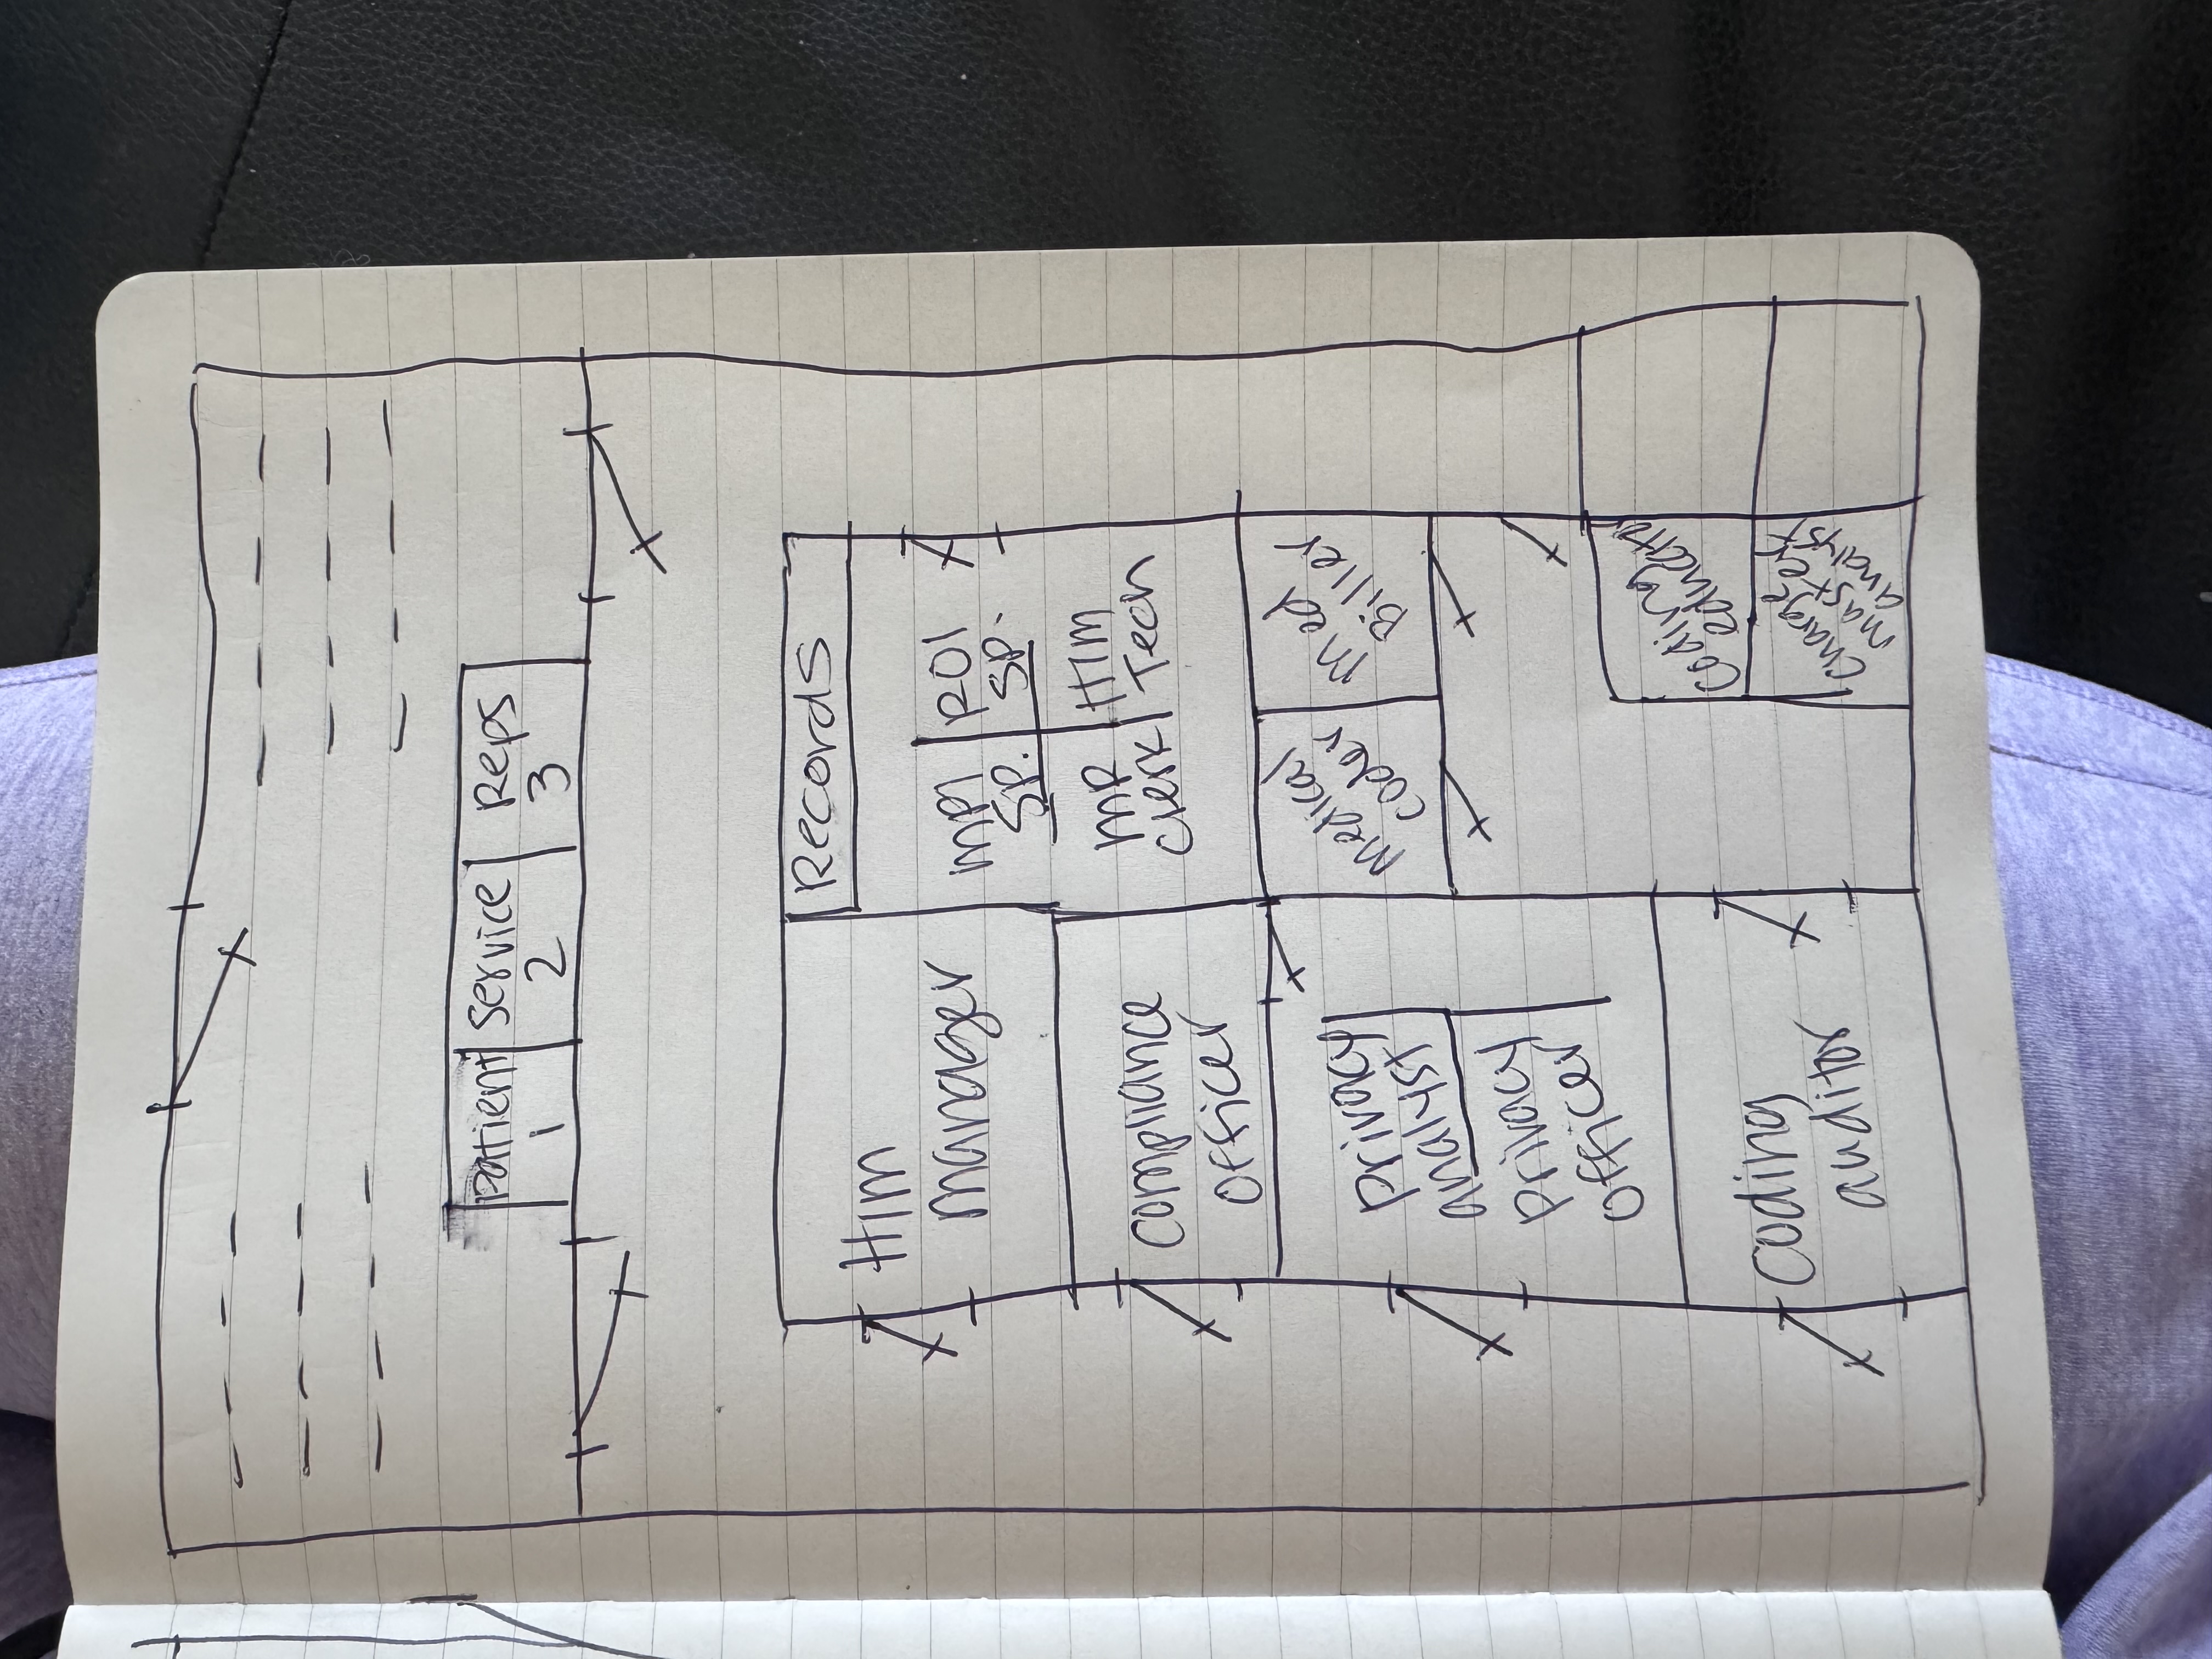 Patient Service Reps
1 2 3
Records
HIM
Manager
MPI
Sp.
ROI
Sp.
MR
Clerk
HIM
Tech
Compliance
Officer
Medical
Coder
Med
Biller
Privacy
Analyst
Privacy
Officer
Coding
Auditor
Coding
Educator
Charge
Master
Analyst